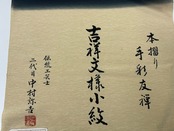 本摺り
手彩友禅
吉祥文様小紋
伝統工芸士
二代目 中村